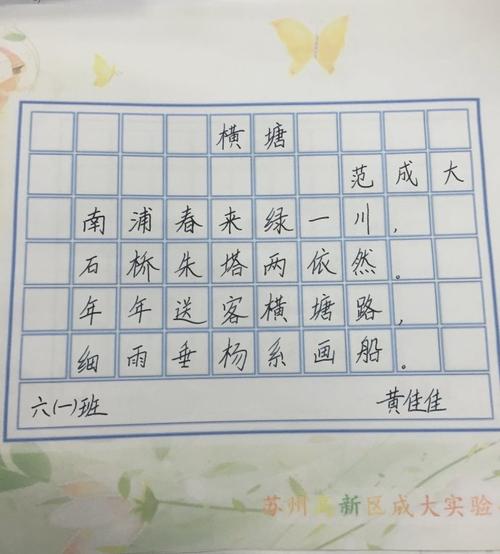 横塘
范成大
南浦春来绿一川，
石桥朱塔两依然。
年年送客横塘路，
细雨垂杨系画船。
六(一)班 黄佳佳
苏州高新区成大实验